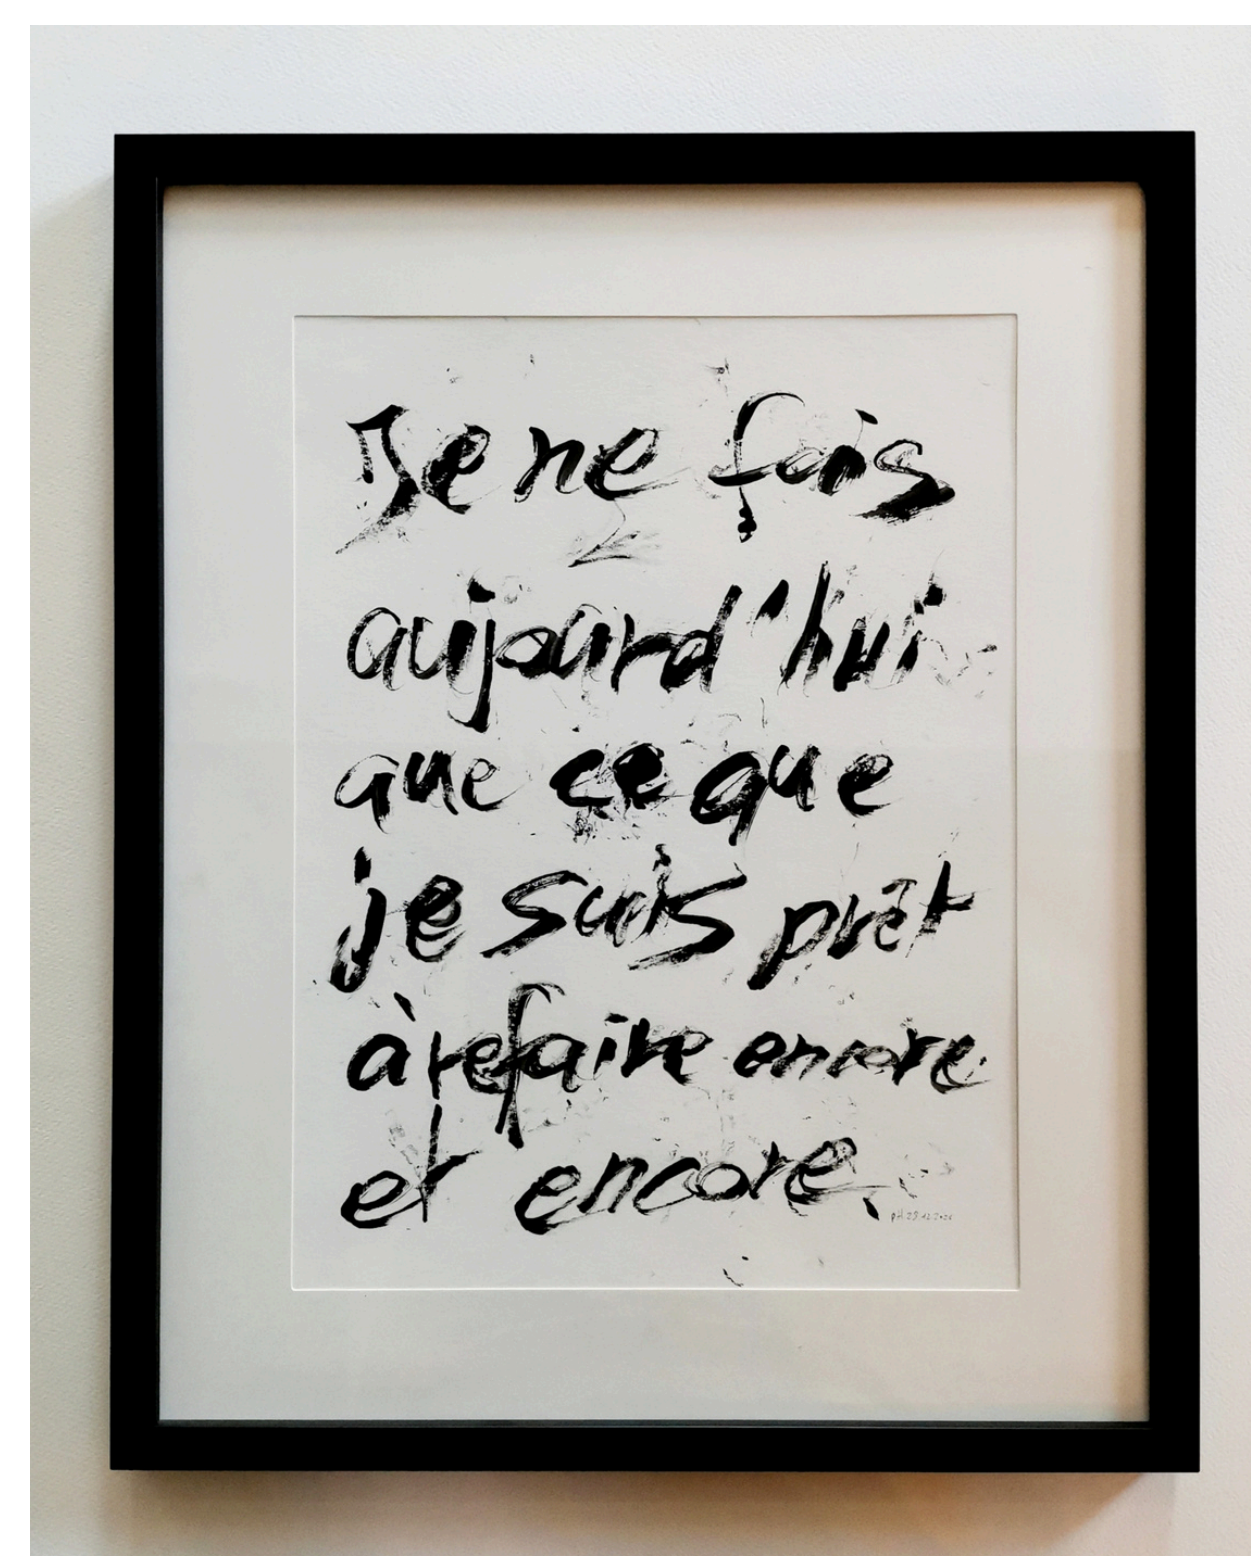 Je ne fais
aujourd'hui
que ce que
je suis prêt
à refaire encore
et encore.